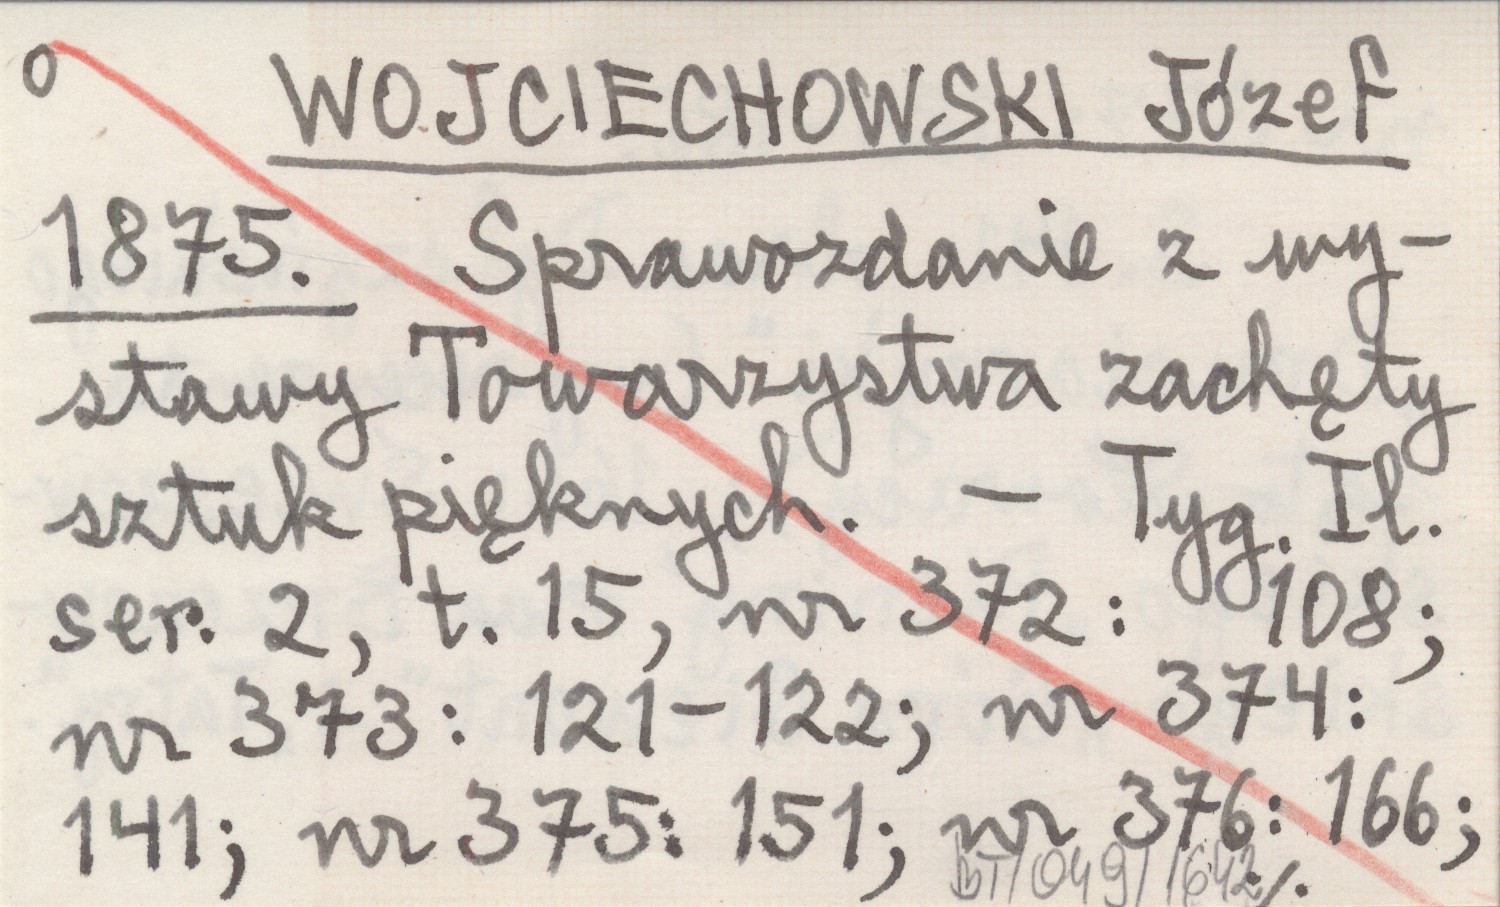 o WOJCIECHOWSKI Józef
1875. Sprawozdanie z wy-
stawy Towarzystwa zachęty
sztuk pięknych. – Tyg. Il.
ser. 2, t. 15, nr 372: 108;
nr 373: 121–122; nr 374:
141; nr 375: 151; nr 376: 166;
BT/049/1642 ./.